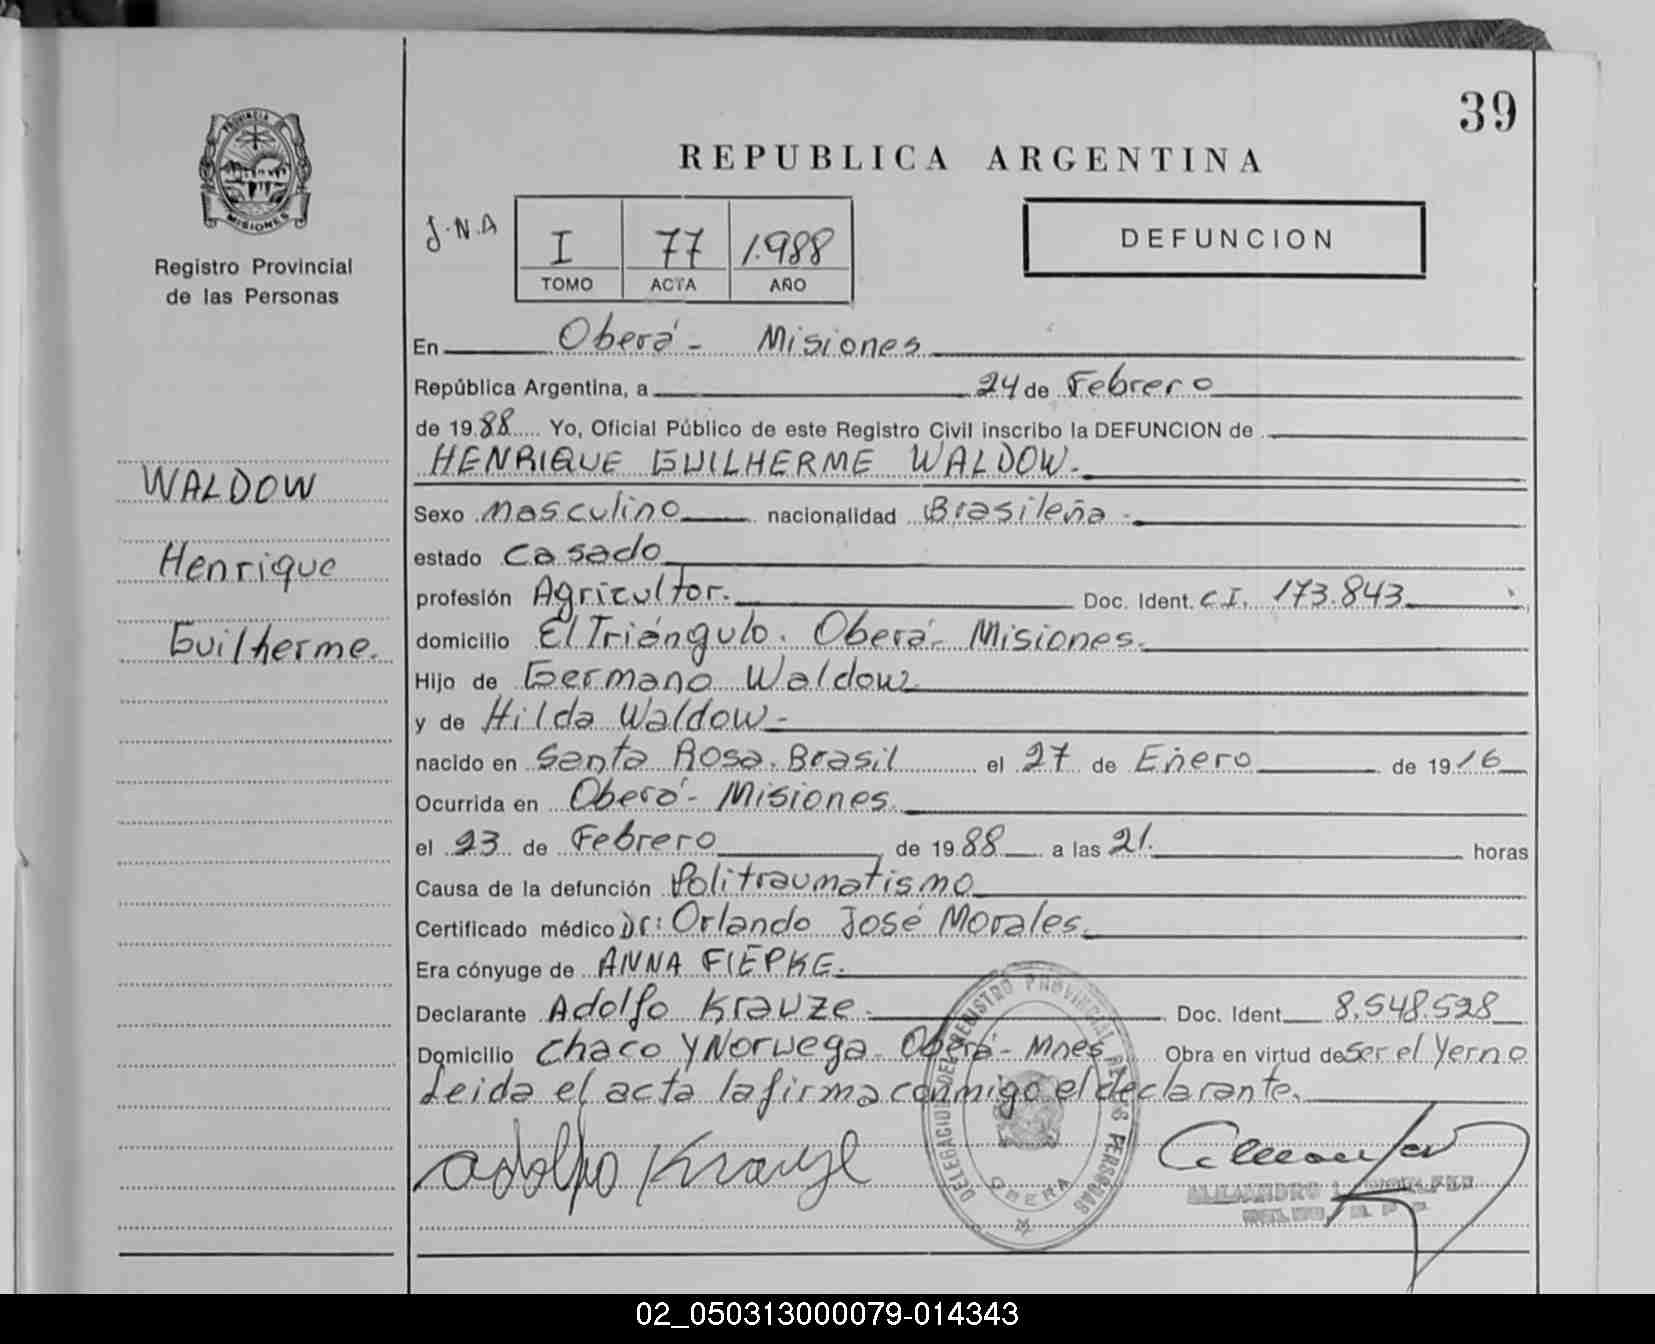 39
PROVINCIA
MISIONES
Registro Provincial
de las Personas
REPUBLICA ARGENTINA
J.N.A
I 77 1.988
TOMO ACTA AÑO
DEFUNCION
En Oberá - Misiones
República Argentina, a 24 de Febrero
de 1988 Yo, Oficial Público de este Registro Civil inscribo la DEFUNCION de
HENRIQUE GUILHERME WALDOW.-
WALDOW
Henrique
Guilherme.
Sexo masculino nacionalidad Brasileña.-
estado casado
profesión Agricultor. Doc. Ident. C.I. 173.843
domicilio El Triángulo. Oberá- Misiones.
Hijo de Germano Waldow
y de Hilda Waldow-
nacido en Santa Rosa. Brasil el 27 de Enero de 1916
Ocurrida en Oberá- Misiones.
el 23 de Febrero de 1988 a las 21. horas
Causa de la defunción Politraumatismo
Certificado médico Dr: Orlando José Morales.
Era cónyuge de ANNA FIEPKE.
Declarante Adolfo Krauze. Doc. Ident. 8.548.528
Domicilio Chaco y Noruega- Oberá- Mnes Obra en virtud de Ser el Yerno
Leida el acta la firma conmigo el declarante.
Adolfo Krauze
DELEGACION DEL REGISTRO PROVINCIAL DE LAS PERSONAS
OBERA
ALEJANDRO
02_050313000079-014343